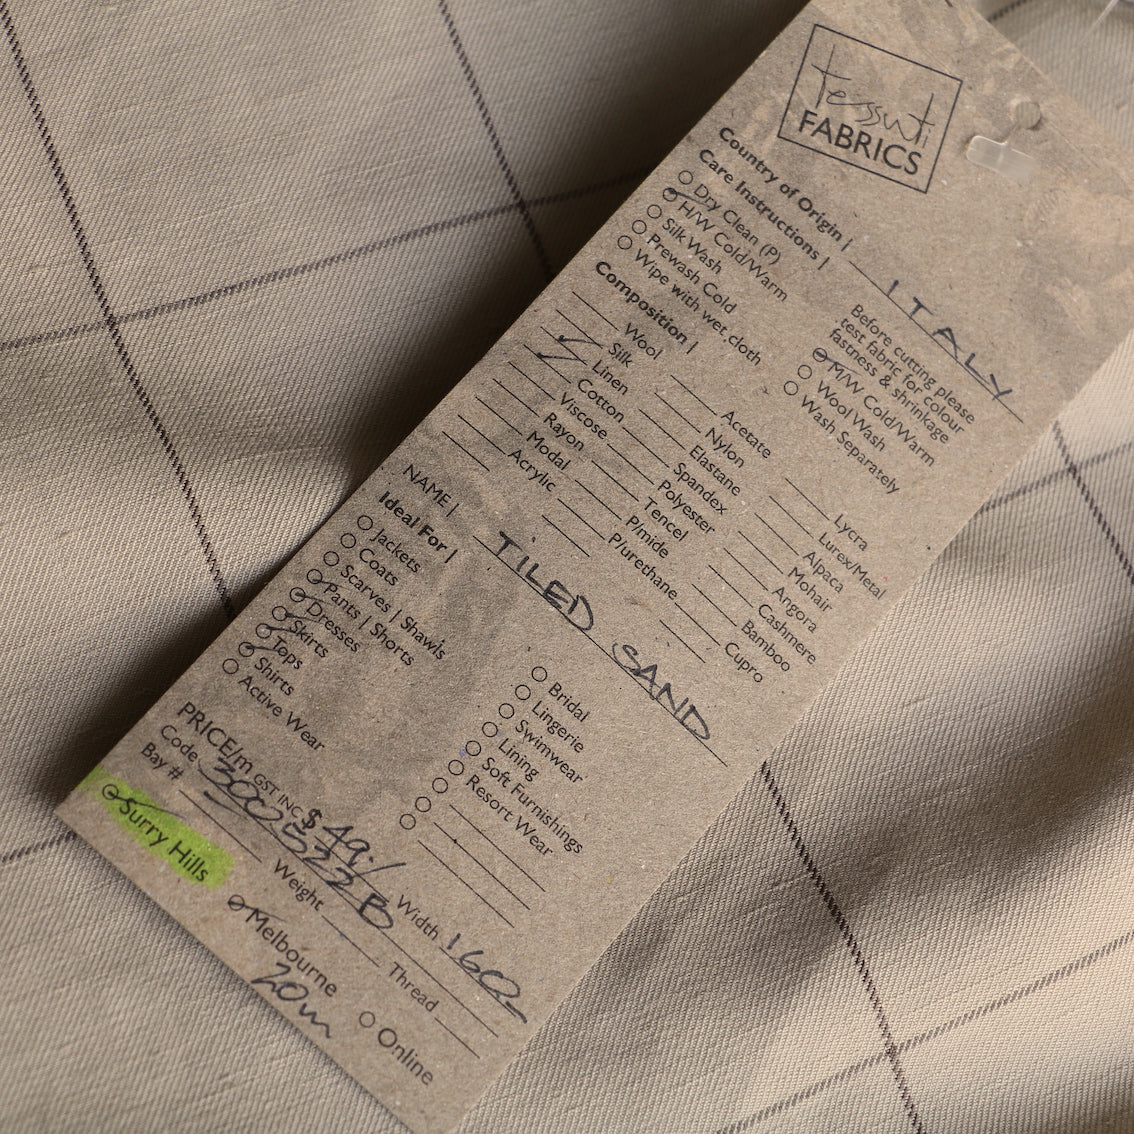 tessuti
FABRICS
Country of Origin | ITALY
Care Instructions |
Dry Clean (P)
H/W Cold/Warm
Silk Wash
Prewash Cold
Wipe with wet cloth
Before cutting please
test fabric for colour
fastness & shrinkage
M/W Cold/Warm
Wool Wash
Wash Separately
Composition |
Wool
Silk
Linen
Cotton
Viscose
Rayon
Modal
Acrylic
Acetate
Nylon
Elastane
Spandex
Polyester
Tencel
P/mide
P/urethane
Lycra
Lurex/Metal
Alpaca
Mohair
Angora
Cashmere
Bamboo
Cupro
NAME | TILED SAND
Ideal For |
Jackets
Coats
Scarves | Shawls
Pants | Shorts
Dresses
Skirts
Tops
Shirts
Active Wear
Bridal
Lingerie
Swimwear
Lining
Soft Furnishings
Resort Wear
PRICE/m GST INC $ 49./ Width 160
Code 300522B
Bay # Weight Thread
Surry Hills Melbourne Online
20m